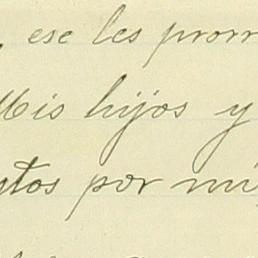 , ese les prorr
Mis hijos y
stos por mi